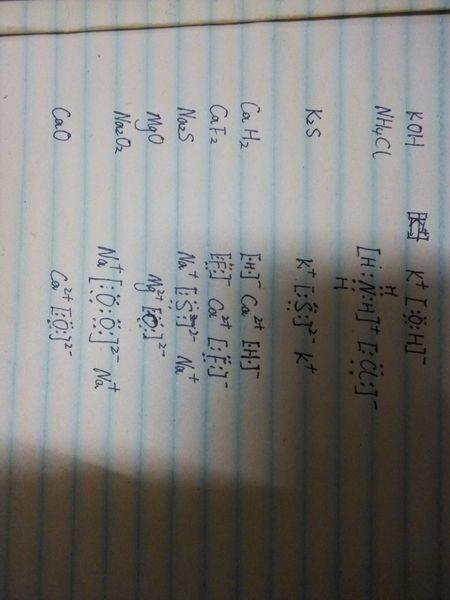 KOH K⁺ [:Ö:H]⁻
NH₄Cl [H:N:H]⁺ [:Cl:]⁻
H
H
K₂S K⁺ [:S:]²⁻ K⁺
CaH₂ [·H]⁻ Ca²⁺ [H·]⁻
CaF₂ [:F:]⁻ Ca²⁺ [:F:]⁻
Na₂S Na⁺ [:S:]²⁻ Na⁺
MgO Mg²⁺ [:O:]²⁻
Na₂O₂ Na⁺ [:Ö:Ö:]²⁻ Na⁺
CaO Ca²⁺ [:O:]²⁻